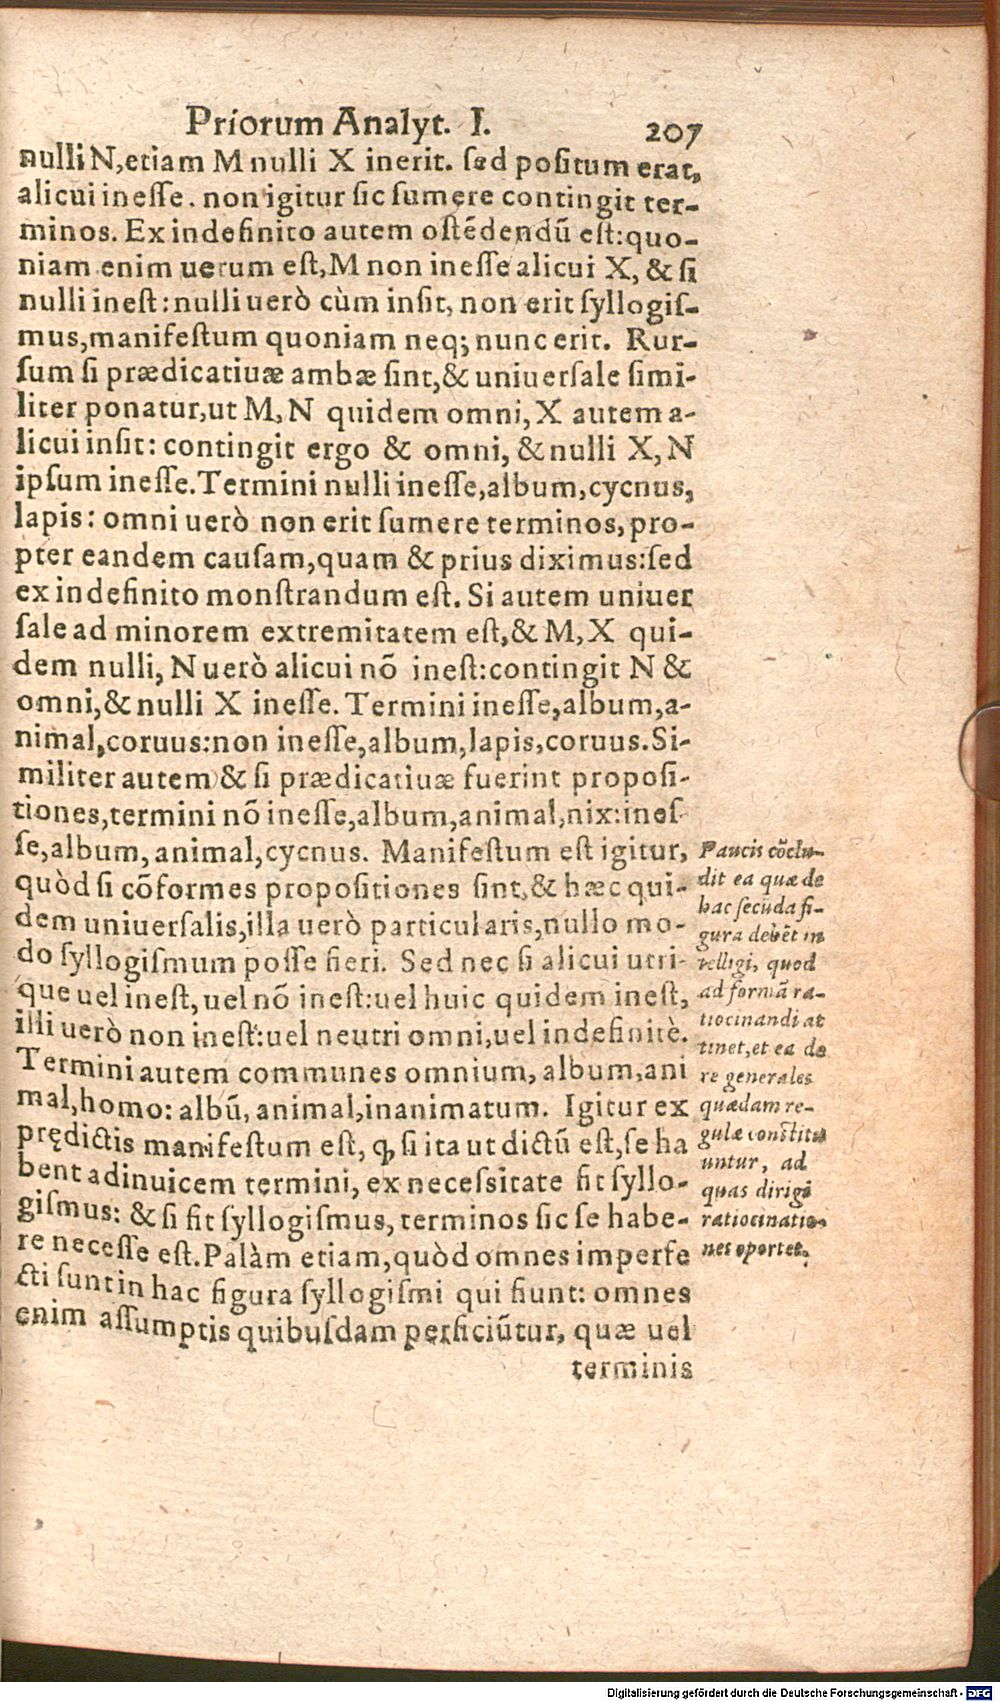 Priorum Analyt. I. 207
nulli N, etiam M nulli X inerit. sed positum erat,
alicui inesse. non igitur sic sumere contingit ter-
minos. Ex indefinito autem ostēdendū est: quo-
niam enim uerum est, M non inesse alicui X, & si
nulli inest: nulli uerò cùm insit, non erit syllogis-
mus, manifestum quoniam neq; nunc erit. Rur-
sum si prædicatiuæ ambæ sint, & uniuersale simi-
liter ponatur, ut M, N quidem omni, X autem a-
licui insit: contingit ergo & omni, & nulli X, N
ipsum inesse. Termini nulli inesse, album, cycnus,
lapis: omni uerò non erit sumere terminos, pro-
pter eandem causam, quam & prius diximus: sed
ex indefinito monstrandum est. Si autem uniuer
sale ad minorem extremitatem est, & M, X qui-
dem nulli, N uerò alicui nō inest: contingit N &
omni, & nulli X inesse. Termini inesse, album, a-
nimal, coruus: non inesse, album, lapis, coruus. Si-
militer autem & si prædicatiuæ fuerint proposi-
tiones, termini nō inesse, album, animal, nix: ines-
se, album, animal, cycnus. Manifestum est igitur,
quòd si cōformes propositiones sint, & hæc qui-
dem uniuersalis, illa uerò particularis, nullo mo-
do syllogismum posse fieri. Sed nec si alicui utri-
que uel inest, uel nō inest: uel huic quidem inest,
illi uerò non inest: uel neutri omni, uel indefinitè.
Termini autem communes omnium, album, ani
mal, homo: albū, animal, inanimatum. Igitur ex
prędictis manifestum est, ꝙ si ita ut dictū est, se ha
bent adinuicem termini, ex necessitate fit syllo-
gismus: & si fit syllogismus, terminos sic se habe-
re necesse est. Palàm etiam, quòd omnes imperfe
cti sunt in hac figura syllogismi qui fiunt: omnes
enim assumptis quibusdam perficiūtur, quæ uel
terminis
Paucis cōclu-
dit ea quæ de
hac secūda fi-
gura debēt in
telligi, quod
ad formā ra-
tiocinandi at
tinet, et ea de
re generales
quædam re-
gulæ constitu
untur, ad
quas dirigi
ratiocinatio-
nes oportet.
Digitalisierung gefördert durch die Deutsche Forschungsgemeinschaft - DFG